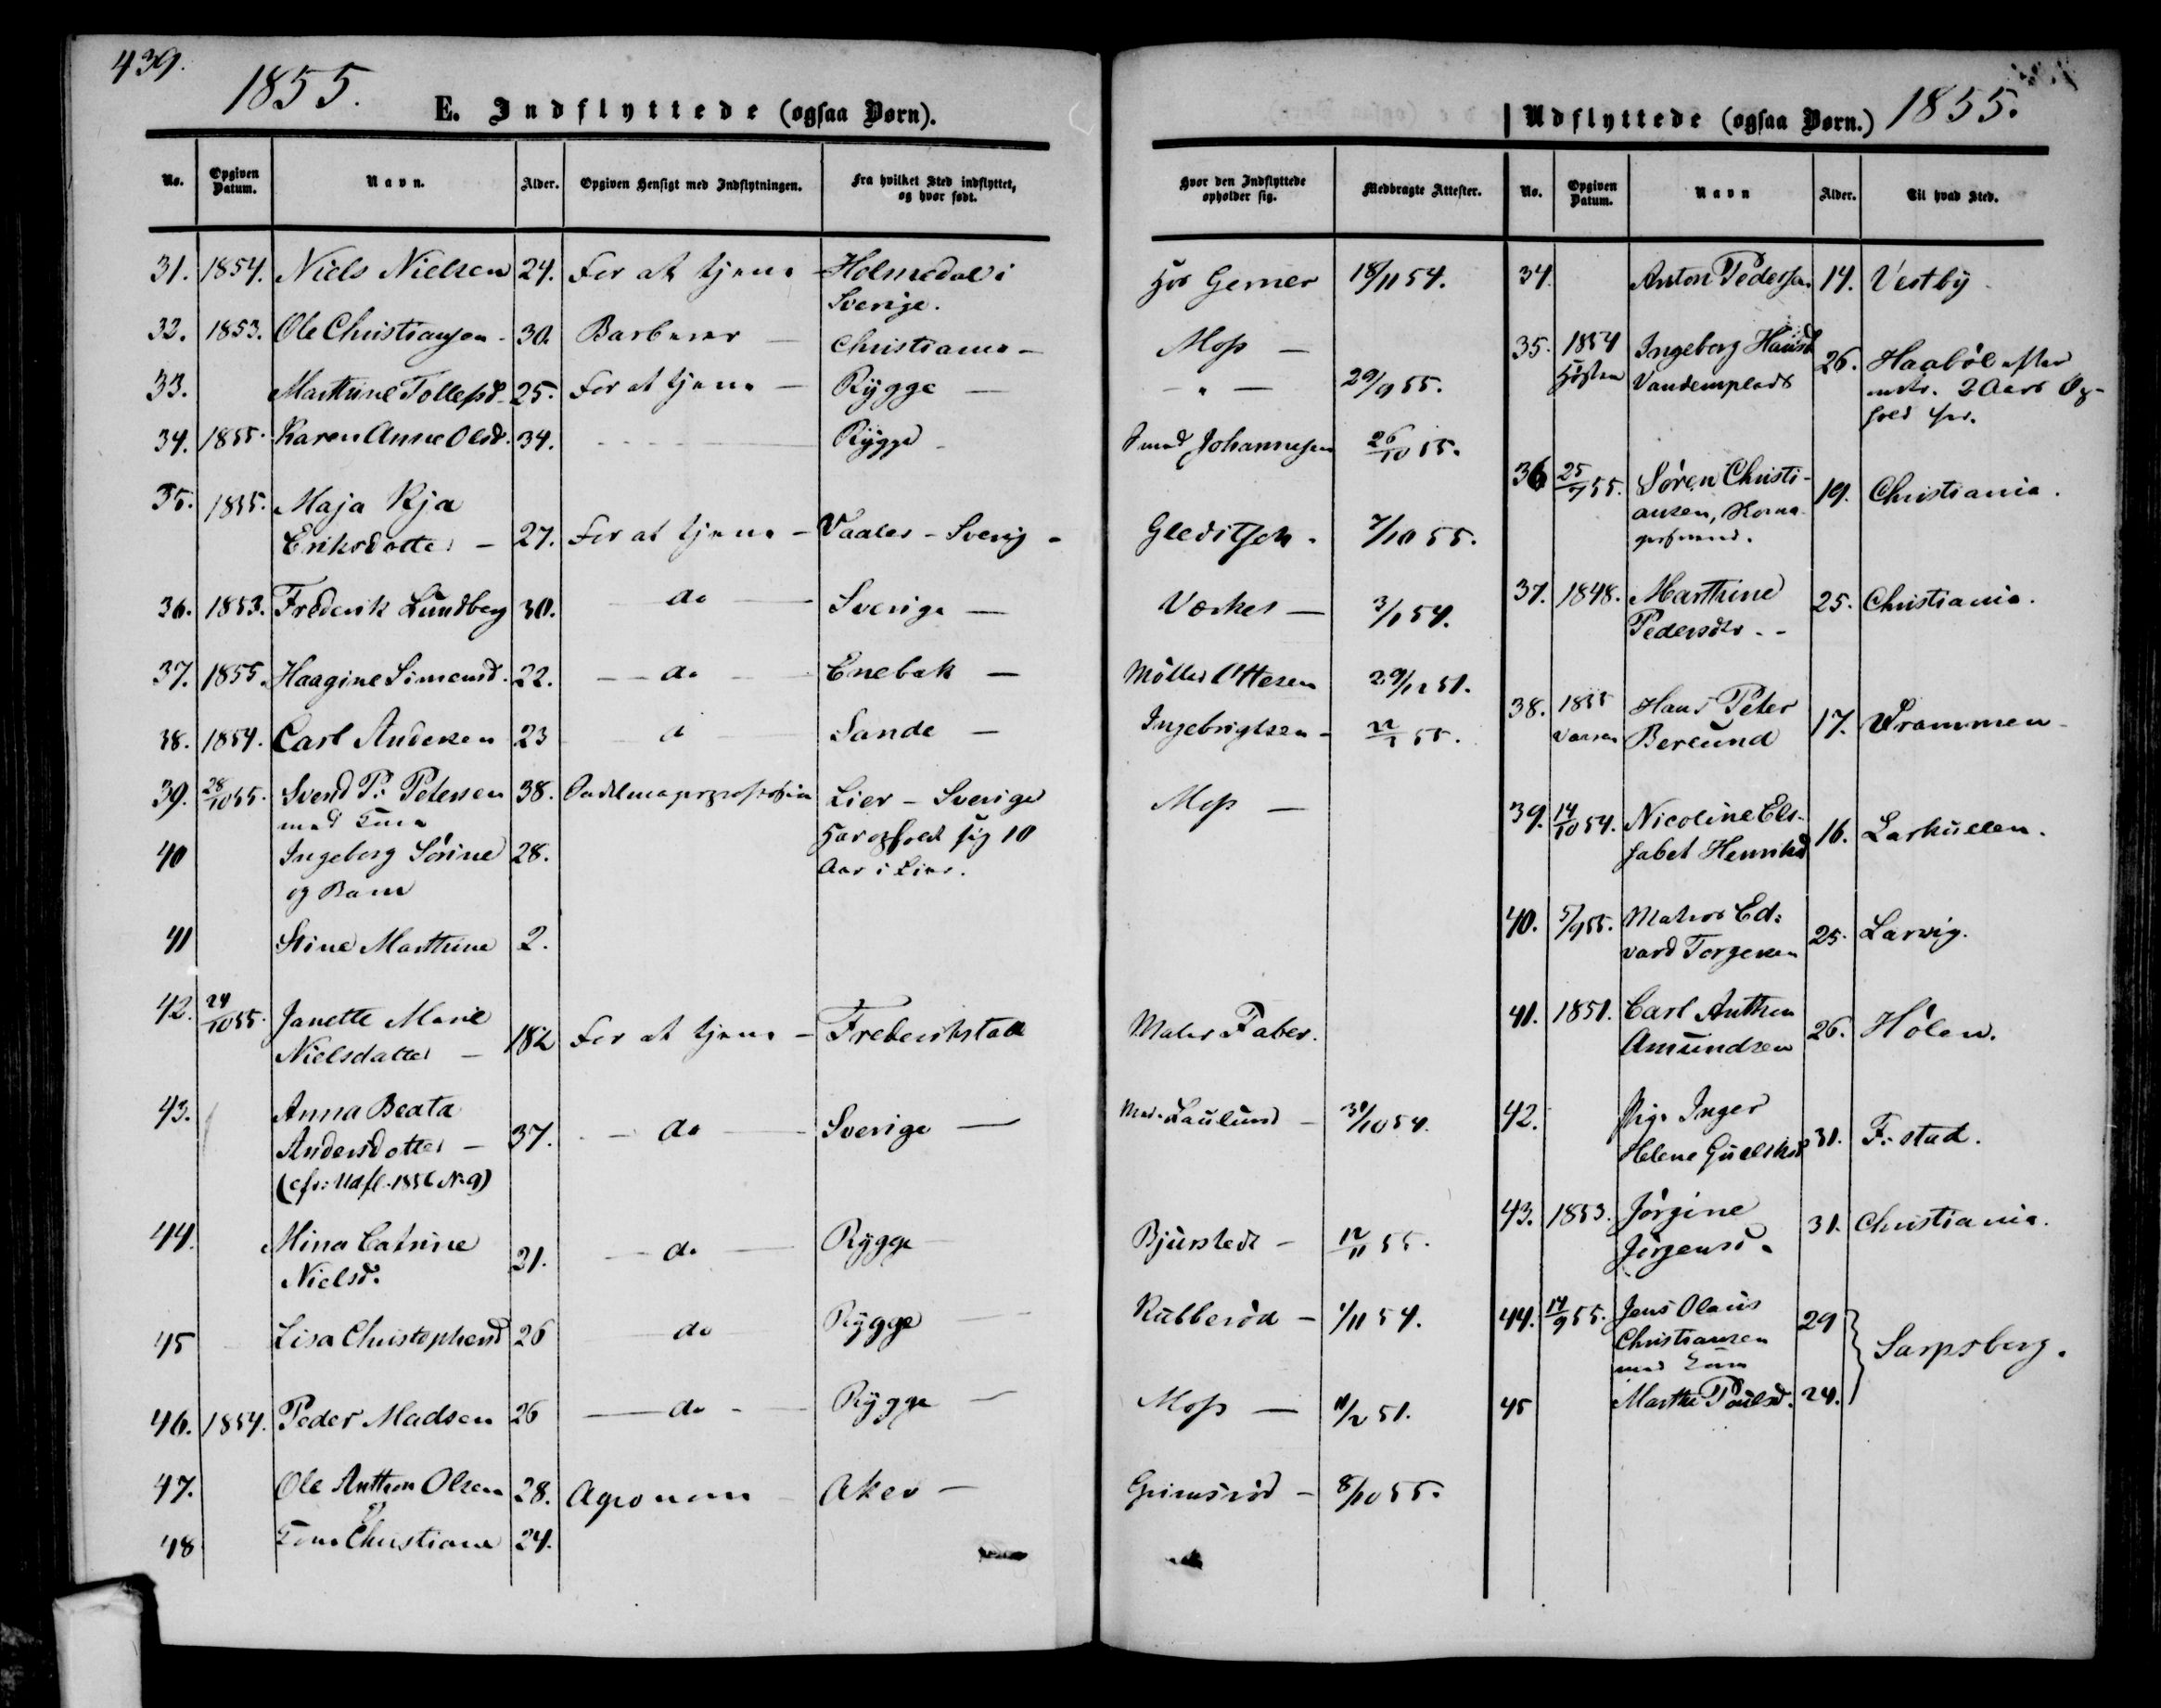 439.
1855.
E. Indflyttede (ogsaa Børn).
No. Opgiven Datum. Navn. Alder. Opgiven Hensigt med Indflytningen. Fra hvilket Sted indflyttet, og hvor født.
31. 1854. Niels Nielsen 24. For at tjene - Holmedal i
Sverige.
32. 1853. Ole Christiansen - 30. Barberer - Christiania -
33. Marthine Tollefsd. 25. For at tjene - Rygge -
34. 1855. Karen Anne Olsd. 34. Rygge -
35. 1855. Maja Kja
Eriksdotter - 27. For at tjene - Vaaler - Sverig -
36. 1853. Frederik Lundberg 30. do Sverige -
37. 1855. Haagine Simensd. 22. do Enebak -
38. 1854. Carl Andersen 23 d Sande -
39. 28/10 55. Svend P. Petersen 38. Lier - Sverige
med Kone
40 Ingeborg Sørine 28. har opholdt sig 10
og Barn Aar i Lier.
41 Stine Marthine 2.
42. 24/10 55. Janette Marie
Nielsdatter - 18½ For at tjene - Frederikstad
43. Anna Beata
Andersdotter - 37. do Sverige -
(cfr: Udfl. 1856 No 9)
44. Mina Catrine
Nielsd. 21. do Rygge
45 Lisa Christophersd 26 do Rygge
46. 1854. Peder Madsen 26 do Rygge
47. Ole Anthon Olsen 28. Agronom Aker -
og
48 Kone Christiane 24.
Udflyttede (ogsaa Børn.) 1855.
Hvor den Indflyttede opholder sig. Medbragte Attester. No. Opgiven Datum. Navn Alder. Til hvad Sted.
Hos Gerner 18/11 54. 34. Anton Pedersen 14. Vestby
Moss - 35. 1854 Ingeborg Hansd. 26. Haabøl efter
- " - 29/9 55. Høsten Vandemplads 2 Aars Op-
hold her.
Smed Johannesen 26/10 55.
36 25/7 55. Søren Christi- 19. Christiania.
ansen,
Gleditsch. 7/10 55.
Værket - 3/1 54. 37. 1848. Marthine 25. Christiania.
Pedersdtr. -
Møller Ottesen 29/12 51.
Ingebrigtsen - 55. 38. 1855 Hans Peter 17. Drammen
Vaaren Berlund
Moss - 39. 14/10 54. Nicoline Els- 16. Larkullen.
sabet Henriksd
40. 5/9 55. Matros Ed- 25. Larvig.
vard Torgersen
Maler Faber. 41. 1851. Carl Anthon 26. Hølen.
Amundsen
Mad. Laulund - 30/10 54. 42. Pige Inger
Helene 31. F: stad.
Bjurstedt - 12/11 55. 43. 1853. Jørgine 31. Christiania.
Jørgensd.
Rabberød - 1/11 54. 44. 14/9 55. Jens Olaus 29
Christiansen
med Kone Sarpsborg.
Moss - 11/2 51. 45 Marthe Poulsd. 24.
Grimsrød - 8/10 55.